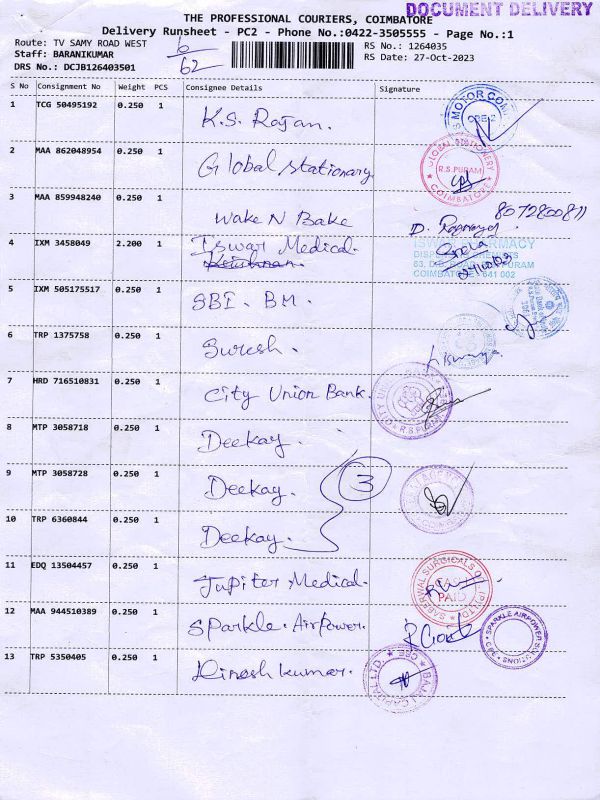 DOCUMENT DELIVERY
THE PROFESSIONAL COURIERS, COIMBATORE
Delivery Runsheet - PC2 - Phone No.:0422-3505555 - Page No.:1
Route: TV SAMY ROAD WEST
6/62
RS No.: 1264035
Staff: BARANIKUMAR
RS Date: 27-Oct-2023
DRS No.: DCJB126403501
S No Consignment No Weight PCS Consignee Details Signature
1 TCG 50495192 0.250 1 K.S. Rajan.
S MOTOR COM
CBE-2
2 MAA 862048954 0.250 1 Global Stationary
GLOBAL STATIONERY
R.S. PURAM
COIMBATORE
3 MAA 859948240 0.250 1 Wake N Bake
8072800811
4 IXM 3458049 2.200 1 Iswar Medical.
Krishnan.
ISWAR PHARMACY
COIMBATORE - 641 002
5 IXM 505175517 0.250 1 SBI. BM.
6 TRP 1375758 0.250 1 Suresh.
7 HRD 716510831 0.250 1 City Union Bank.
CITY UNION
R.S. PURAM
8 MTP 3058718 0.250 1 Deekay.
9 MTP 3058728 0.250 1 Deekay. 3
10 TRP 6360844 0.250 1 Deekay.
11 EDQ 13504457 0.250 1 Jupiter Medical.
SURGICALS
PAID
12 MAA 944510389 0.250 1 Sparkle. Airpower.
SPARKLE AIRPOWER SOLUTIONS
13 TRP 5350405 0.250 1 Dinesh kumar.
BAJAJ CAPITAL LTD.
CBE